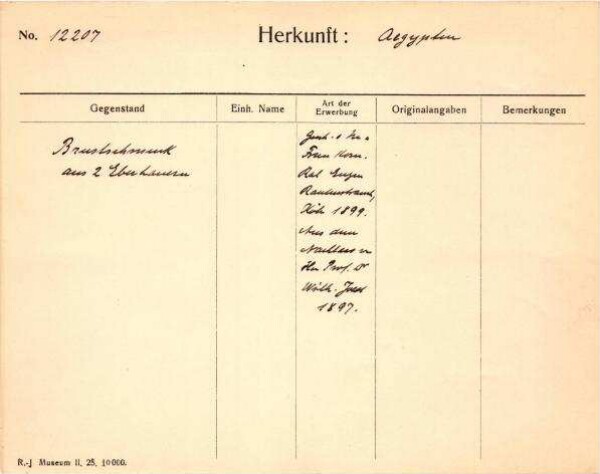 No. 12207 Herkunft: Aegypten
Gegenstand Einh. Name Art der Erwerbung Originalangaben Bemerkungen
Brustschmuck
aus 2 Eberhauern
Gesch. v. Hr. u.
Frau Kom.
Rat Eugen
Rautenstrauch,
Köln 1899.
Aus dem
Nachlass v.
Hn Prof. Dr
Wilh. Joest
1897.
R.-J Museum II. 25. 10000.